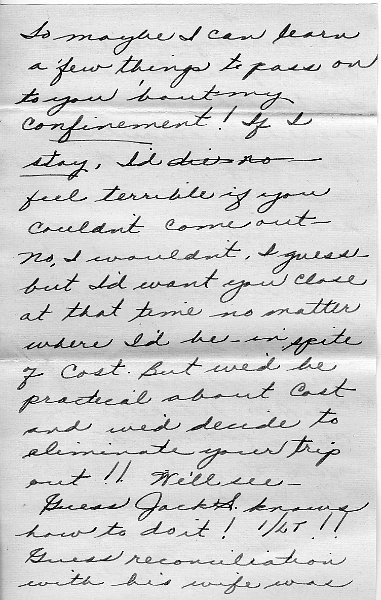 So maybe I can learn
a few things to pass on
to you 'bout my
confinement! If I
stay, I'd
feel terrible if you
couldn't come out—
No, I wouldn't, I guess
but I'd want you close
at that time no matter
where I'd be—in spite
of cost. But we'd be
practical about cost
and we'd decide to
eliminate your trip
out!! We'll see—
Guess Jack S. knows
how to do it! 1/LT!!
Guess reconciliation
with his wife was